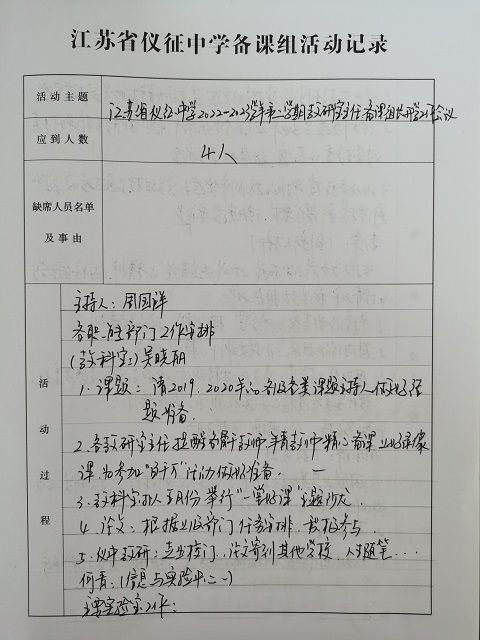 江苏省仪征中学备课组活动记录
活动主题
江苏省仪征中学2022-2023学年第二学期教研室主任备课组长开学工作会议
应到人数
4人
缺席人员名单
及事由
活动过程
主持人：周国详
各职能部门工作安排
(教科室)吴晓朝
1. 课题：请2019、2020年的各级各类课题主持人做好结
题准备.
2. 各教研室主任提醒骨干教师、青年教师精心备课
课 为参加 活动做好准备.
3. 教科室 三月份举行"一堂好课"主题沙龙.
4. 论文：根据上级部门任务安排，积极参与
5. 仪中教研：走出校门，论文寄到其他学校，人生随笔...
何青：(信息与实验中心)
主要实验室工作：